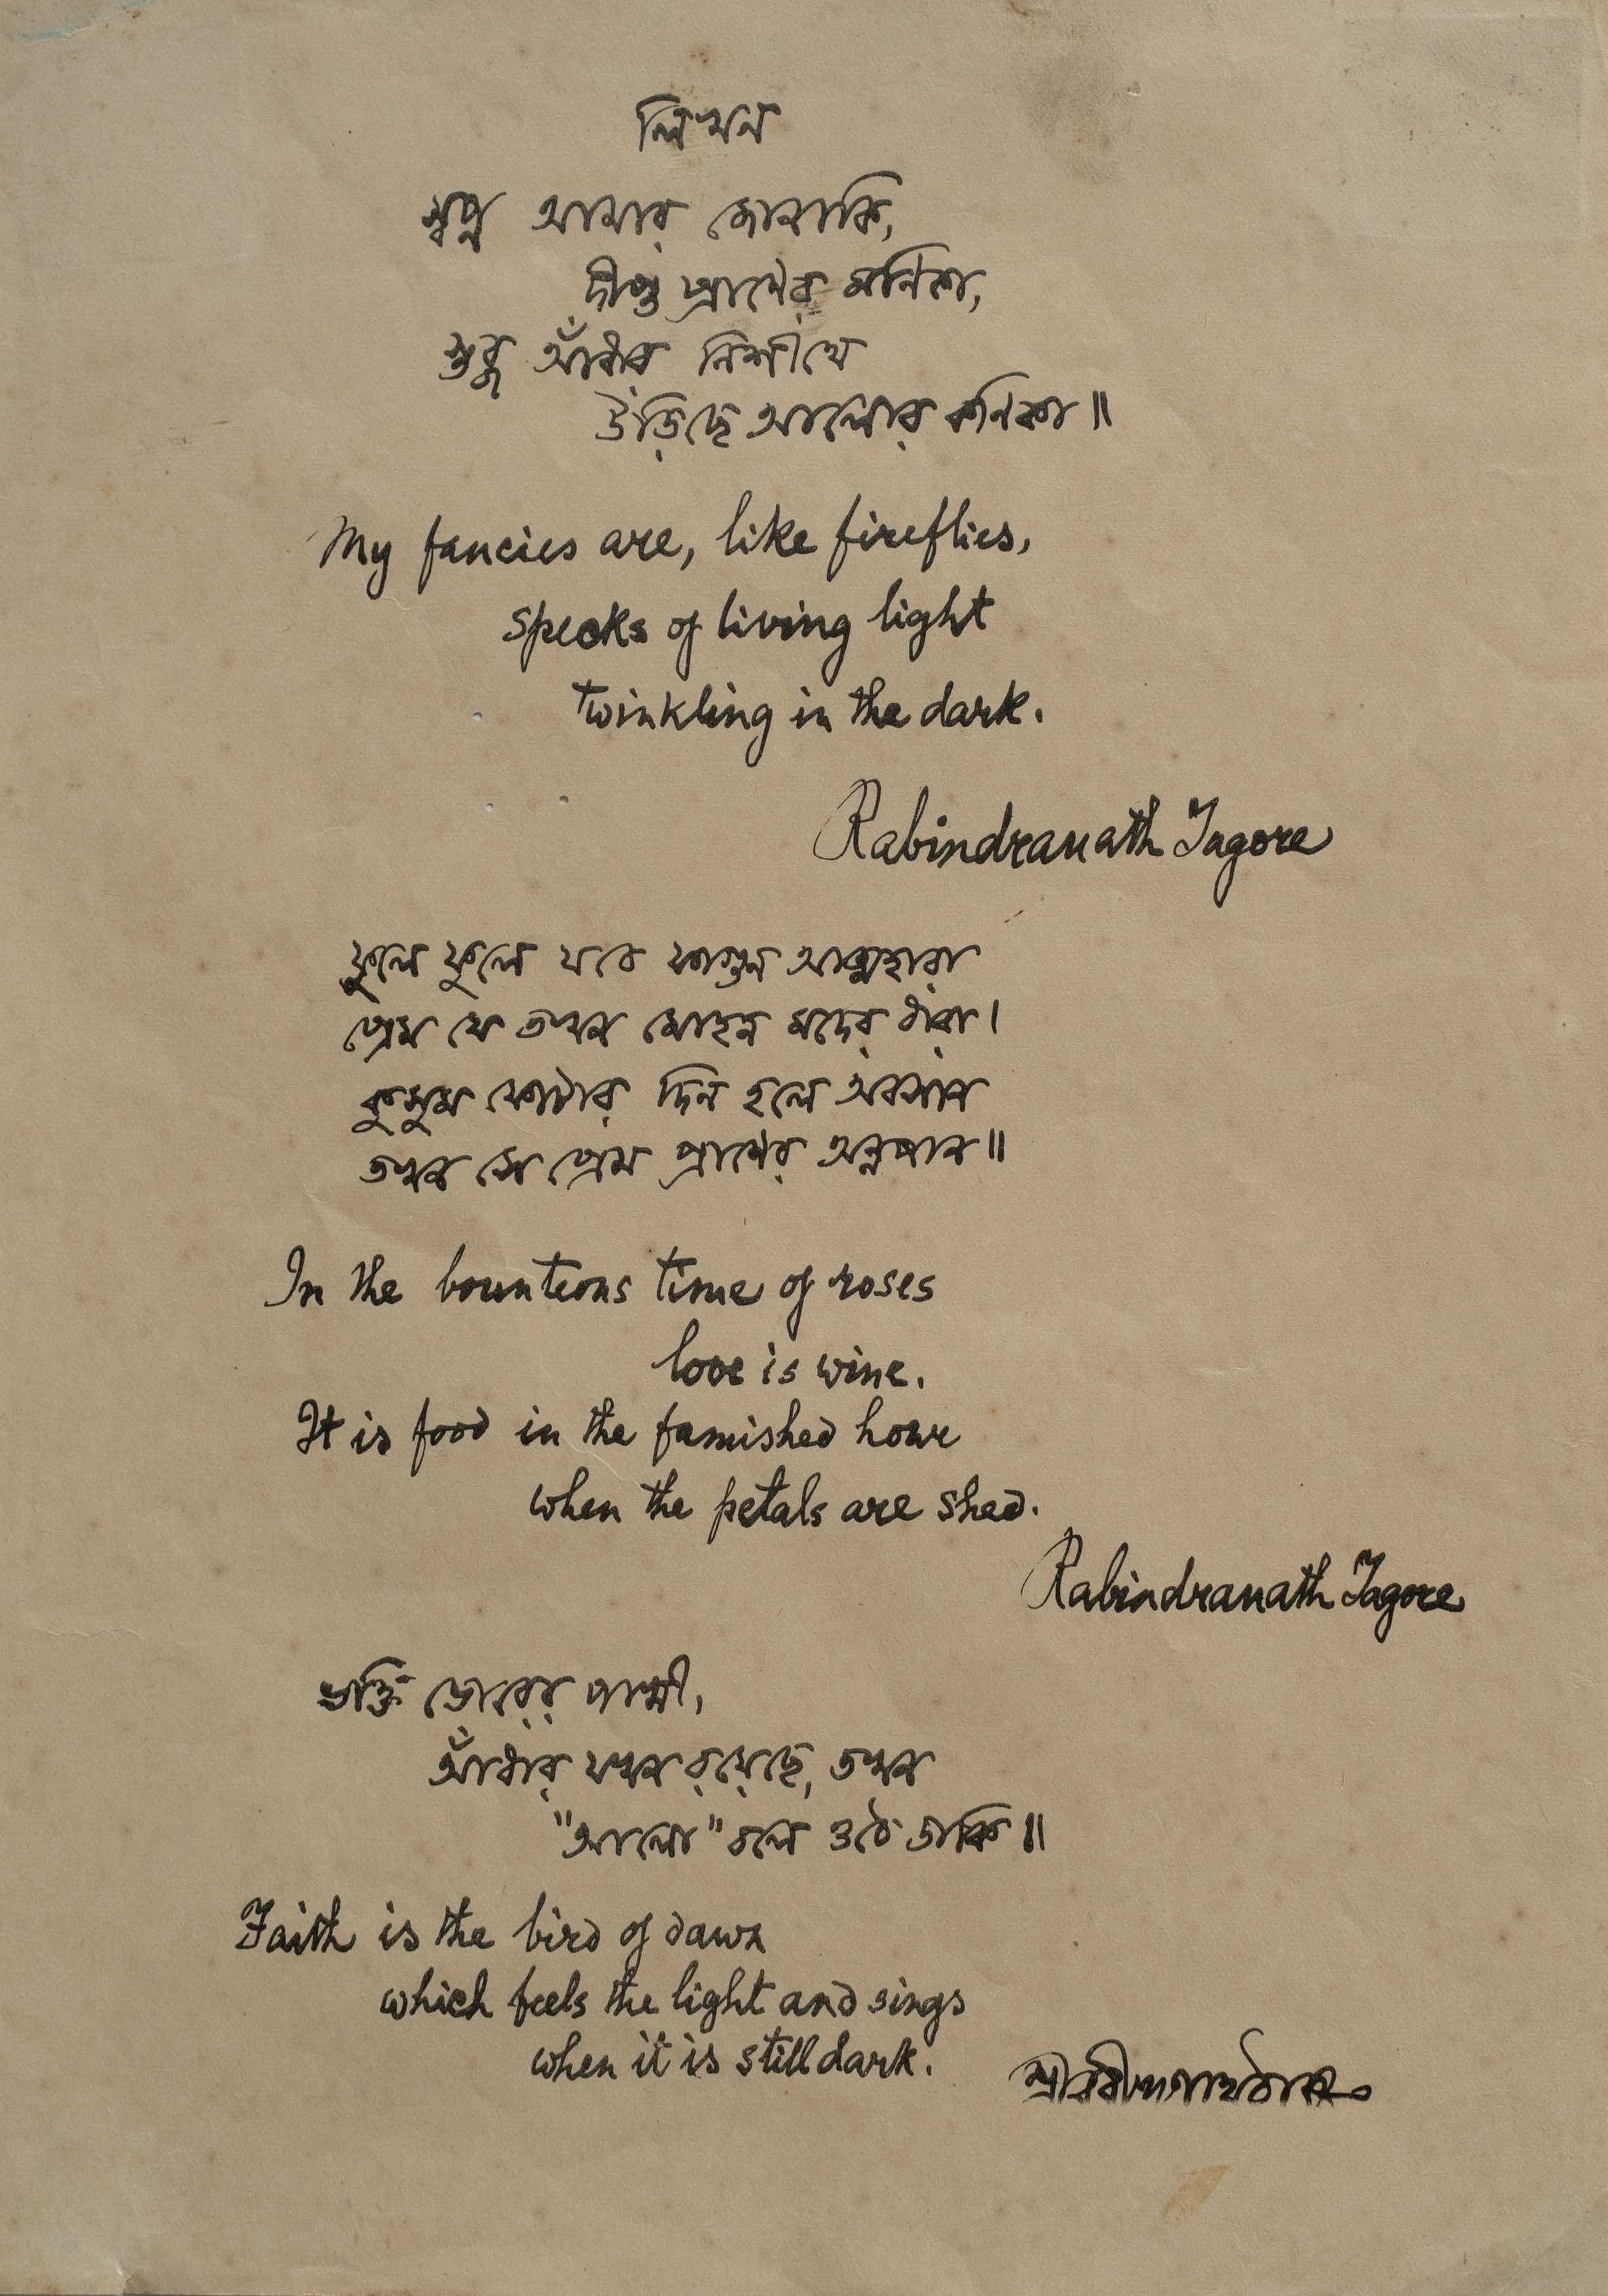 লিখন
স্বপ্ন আমার জোনাকি,
দীপ্ত প্রাণের মণিকা,
স্তব্ধ আঁধার নিশীথে
উড়িছে আলোর কণিকা॥
My fancies are, like fireflies,
specks of living light
twinkling in the dark.
Rabindranath Tagore
ফুলে ফুলে যবে ফাগুন আত্মহারা
প্রেম যে তখন মোহন মদের ধারা।
কুসুম ফোটার দিন হলে অবসান
তখন সে প্রেম প্রাণের অন্নপান॥
In the bounteous time of roses
love is wine.
It is food in the famished hour
when the petals are shed.
Rabindranath Tagore
ভক্তি ভোরের পাখী,
আঁধার যখন রয়েছে, তখন
"আলো" বলে ওঠে ডাকি॥
Faith is the bird of dawn
which feels the light and sings
when it is still dark.
শ্রীরবীন্দ্রনাথ ঠাকুর